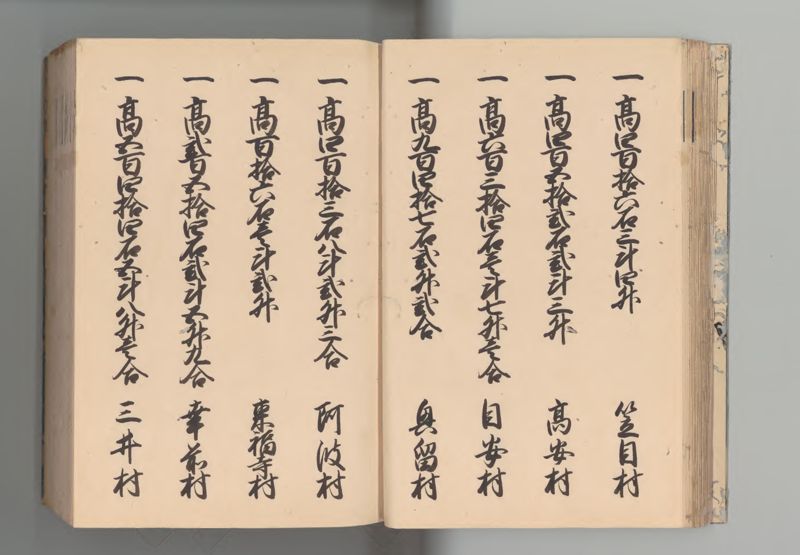 一 高四百拾六石三斗四升 笠目村
一 高四百五拾弐石弐斗三升 高安村
一 高六百三拾四石壱斗七升壱合 目安村
一 高九百四拾七石弐升弐合 興留村
一 高四百拾三石八斗弐升三合 阿波村
一 高百拾六石壱斗弐升 東福寺村
一 高弐百五拾四石弐斗五升九合 幸前村
一 高五百四拾四石五斗八升壱合 三井村